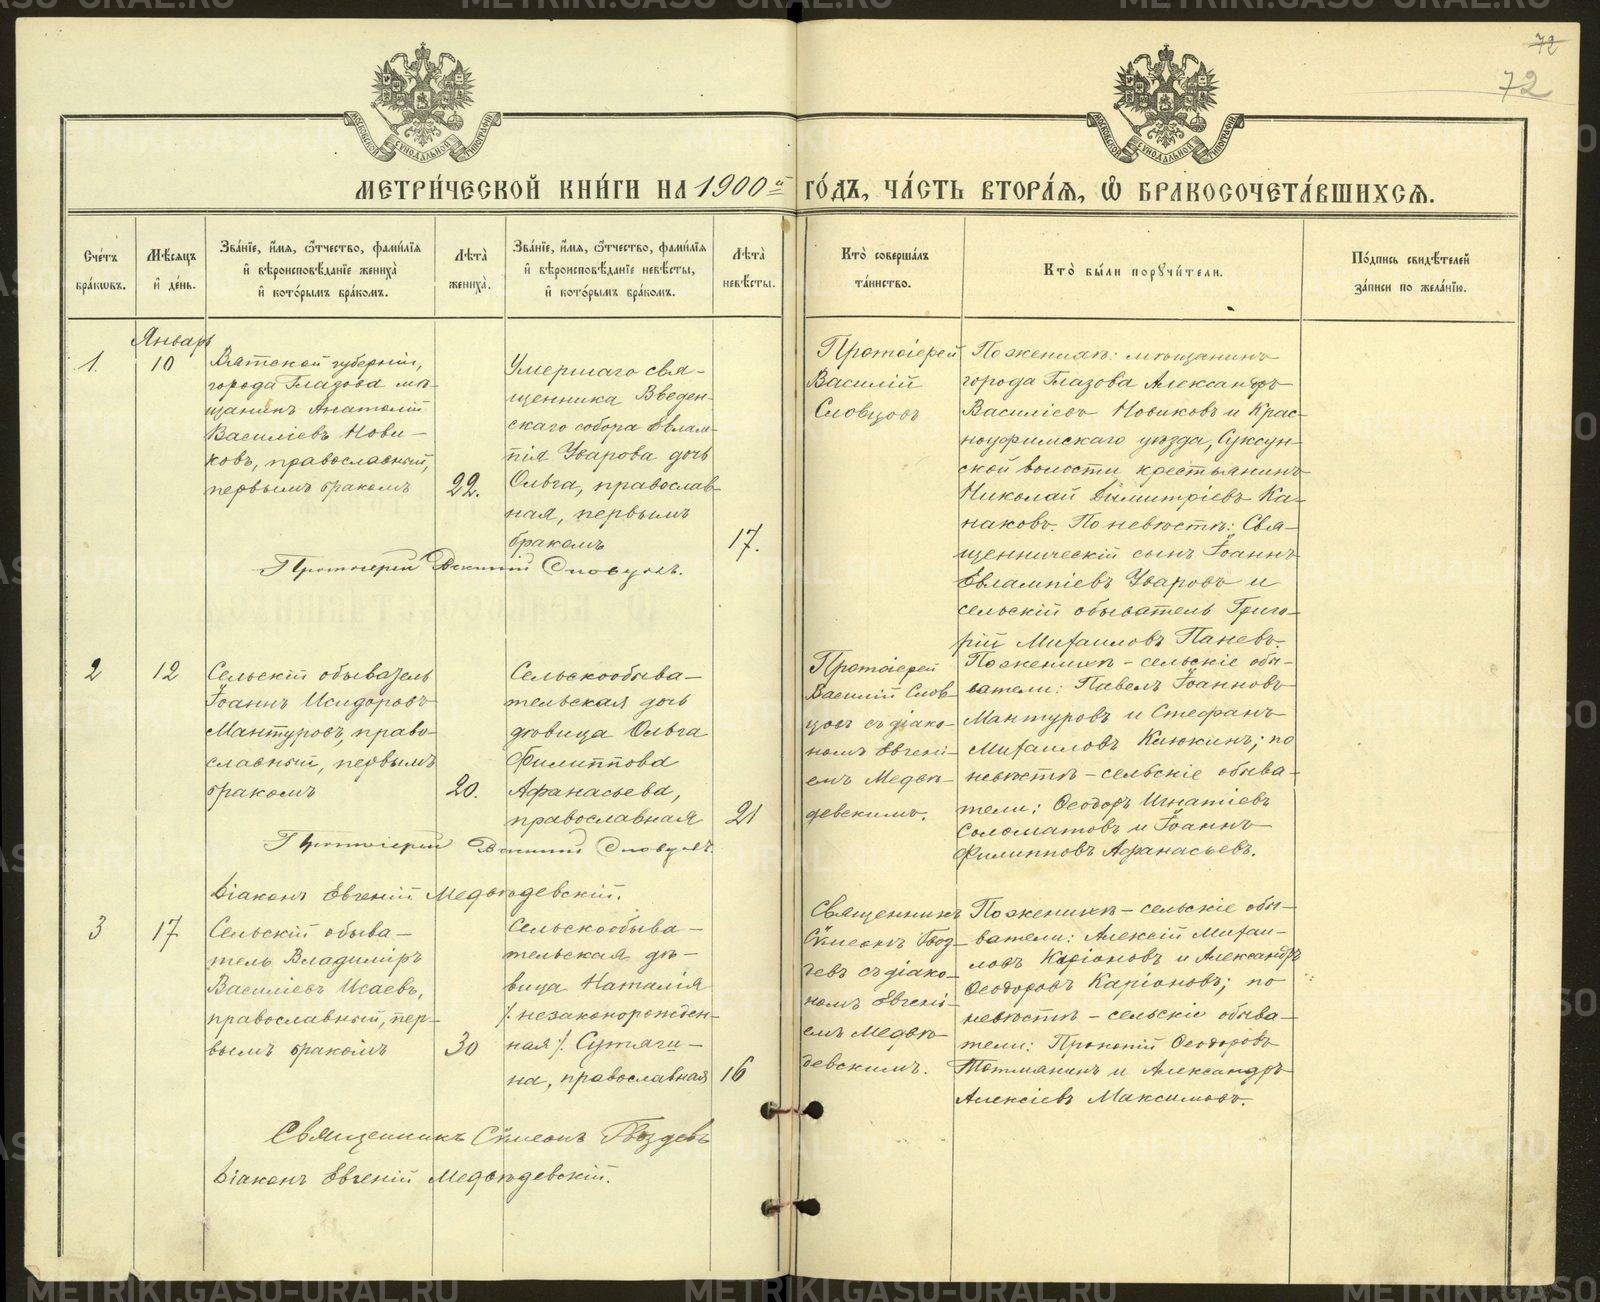 72
72
МОСКОВСКОЙ СѴНОДАЛЬНОЙ ТИПОГРАФІИ
МОСКОВСКОЙ СѴНОДАЛЬНОЙ ТИПОГРАФІИ
МЕТРИ́ЧЕСКОЙ КНИ́ГИ НА 1900й ГО́ДЪ, ЧА́СТЬ ВТОРА́Я, Ѽ БРАКОСОЧЕТА́ВШИХСѦ.
Сче́тъ
бра́кѡвъ.
Мѣ́сяцъ
и҆ де́нь.
Зва́нїе, и҆́мя, ѻ҆́тчество, фами́лїѧ
и҆ вѣроисповѣ́данїе жениха̀
и҆ кото́рымъ бра́комъ.
Лѣ́та̀
жениха̀.
Зва́нїе, и҆́мя, ѻ҆́тчество, фами́лїѧ
и҆ вѣроисповѣ́данїе невѣ́сты,
и҆ кото́рымъ бра́комъ.
Лѣ́та̀
невѣ́сты.
Кто̀ соверша́лъ
та́инство.
Кто̀ бы́ли порꙋчи́тели.
По́дпись свидѣ́телей
за́писи по жела́нїю.
Январь
1.
10
Вятской губерніи,
города Глазова мѣ-
щанинъ Анатолій
Василіевъ Нови-
ковъ, православный,
первымъ бракомъ
22.
Умершаго свя-
щенника Введен-
скаго собора Евлам-
пія Уварова дочь
Ольга, православ-
ная, первымъ
бракомъ
17.
Протоіерей
Василій
Словцовъ
По женихѣ: мѣщанинъ
города Глазова Александръ
Василіевъ Новиковъ и Крас-
ноуфимскаго уѣзда, Суксун-
ской волости крестьянинъ
Николай Димитріевъ Ка-
наковъ. По невѣстѣ: Свя-
щенническій сынъ Іоаннъ
Евлампіевъ Уваровъ и
сельскій обыватель Григо-
рій Михаиловъ Паневъ.
Протоіерей Василій Словцовъ.
2
12
Сельскій обыватель
Іоаннъ Исидоровъ
Мантуровъ, право-
славный, первымъ
бракомъ
20.
Сельскообыва-
тельская дочь
дѣвица Ольга
Филиппова
Афанасьева,
православная
21
Протоіерей
Василій Слов-
цовъ съ діако-
номъ Евгені-
емъ Медвѣ-
девскимъ.
По женихѣ - сельскіе обы-
ватели: Павелъ Іоанновъ
Мантуровъ и Стефанъ
Михаиловъ Клюкинъ; по
невѣстѣ - сельскіе обыва-
тели: Ѳеодоръ Игнатіевъ
Соломатовъ и Іоаннъ
Филипповъ Афанасьевъ.
Протоіерей Василій Словцовъ
Діаконъ Евгеній Медвѣдевскій.
3
17
Сельскій обыва-
тель Владиміръ
Василіевъ Исаевъ,
православный, пер-
вымъ бракомъ
30
Сельскообыва-
тельская дѣ-
вица Наталія
/. незаконорожден-
ная /. Сутяги-
на, православная
16
Священникъ
Сѵмеонъ Гвоз-
девъ съ діако-
номъ Евгені-
емъ Медвѣ-
девскимъ.
По женихѣ - сельскіе обы-
ватели: Алексій Михаи-
ловъ Каріоновъ и Александръ
Ѳеодоровъ Каріоновъ; по
невѣстѣ - сельскіе обыва-
тели: Прокопій Ѳеодоровъ
Тотмянинъ и Александръ
Алексіевъ Максимовъ.
Священникъ Сѵмеонъ Гвоздевъ
Діаконъ Евгеній Медвѣдевскій.
METRIKI.GASO-URAL.RU